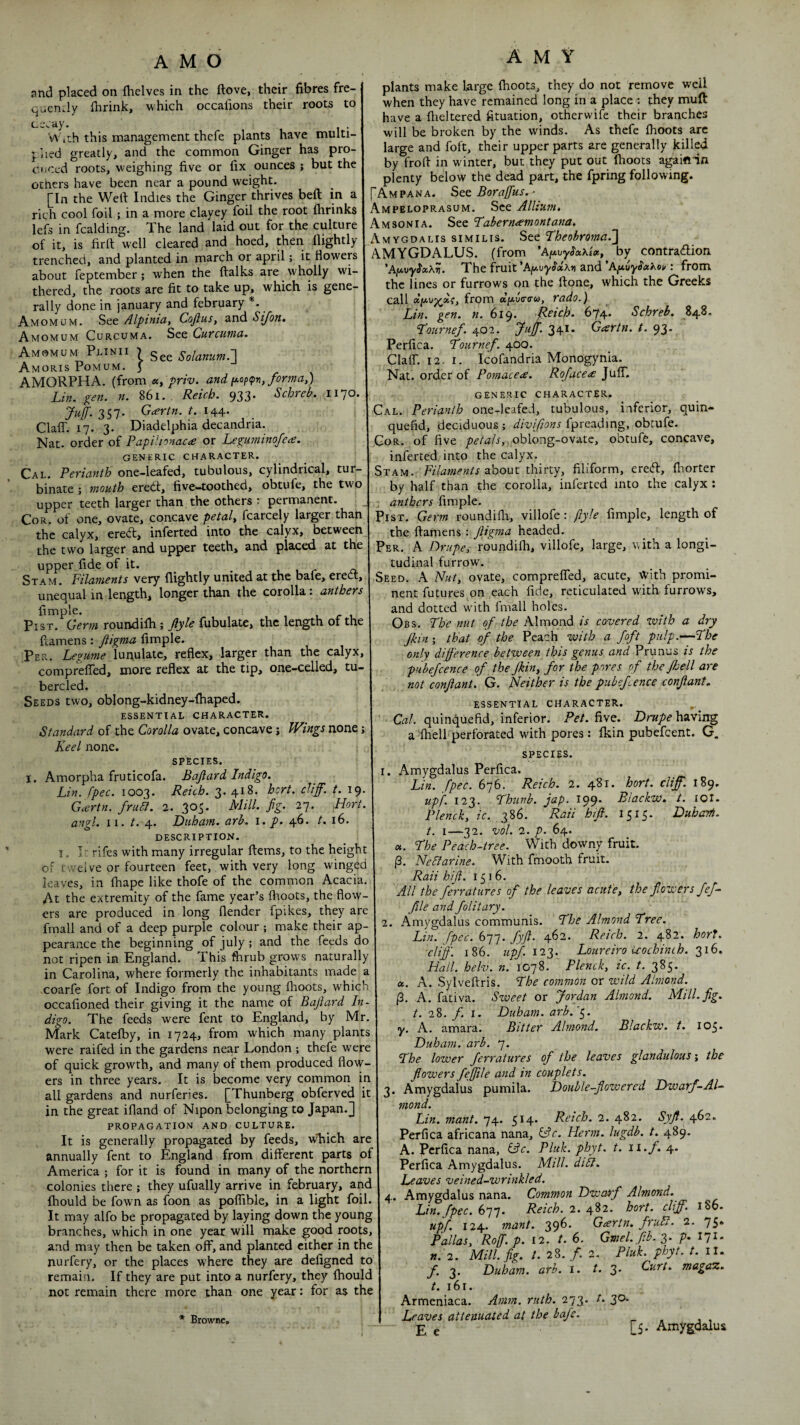 A M O
and placed on ſhelves in the ſtove, their fibres fre-
quently ſhrink, which occaſions their roots to
decay.
With this management theſe plants have multi-
plied greatly, and the common Ginger has pro-
duced roots, weighing five or ſix ounces ; but the
others have been near a pound weight.
[In the Weſt Indies the Ginger thrives beſt in a
rich cool ſoil ; in a more clayey ſoil the root ſhrinks
leſs in ſcalding. The land laid out for the culture
of it, is firſt well cleared and hoed, then ſlightly
trenched, and planted in march or april ; it flowers
about ſeptember ; when the ſtalks are wholly wi-
thered, the roots are fit to take up, which is gene-
rally done in january and february *.
Amomum. See Alpinia, Coſtus, and Siſon.
Amomum Curcuma. See Curcuma.
Amomum Plinii } See Solanum.]
Amoris Pomum. }
AMORPHA. (from α, priv. and μορφη, forma,)
Lin. gen. n. 861. Reich. 933. Schreb. 1170.
Juſſ. 357. Gærtn. t. 144.
Claſſ. 17. 3. Diadelphia decandria.
Nat. order of Papilionaceæ or Leguminoſeæ.
GENERIC CHARACTER.
Cal. Perianth one-leafed, tubulous, cylindrical, tur-
binate ; mouth erect, five-toothed, obtuſe, the two
upper teeth larger than the others : permanent.
Cor. of one, ovate, concave petal, ſcarcely larger than
the calyx, erect, inſerted into the calyx, between
the two larger and upper teeth, and placed at the
upper ſide of it.
Stam. Filaments very ſlightly united at the baſe, erect,
unequal in length, longer than the corolla : anthers
ſimple.
Pist. Germ roundiſh ; ſtyle ſubulate, the length of the
ſtamens : ſtigma ſimple.
Per. Legume lunulate, reflex, larger than the calyx,
compreſſed, more reflex at the tip, one-celled, tu-
bercled.
Seeds two, oblong-kidney-ſhaped.
ESSENTIAL CHARACTER.
Standard of the Corolla ovate, concave ; Wings none ;
Keel none.
SPECIES.
1. Amorpha fruticoſa. Baſtard Indigo.
Lin. ſpec. 1003. Reich. 3. 418. hort. cliff. t. 19.
Gærtn. fruct. 2. 305. Mill. fig. 27. Hort.
angl. 11. t. 4. Duham. arb. 1. p. 46. t. 16.
DESCRIPTION.
1. It riſes with many irregular ſtems, to the height
of twelve or fourteen feet, with very long winged
leaves, in ſhape like thoſe of the common Acacia.
At the extremity of the ſame year's ſhoots, the flow-
ers are produced in long ſlender ſpikes, they are
ſmall and of a deep purple colour ; make their ap-
pearance the beginning of july ; and the ſeeds do
not ripen in England. This ſhrub grows naturally
in Carolina, where formerly the inhabitants made a
coarſe ſort of Indigo from the young ſhoots, which
occaſioned their giving it the name of Baſtard In-
digo. The ſeeds were ſent to England, by Mr.
Mark Cateſby, in 1724, from which many plants
were raiſed in the gardens near London ; theſe were
of quick growth, and many of them produced flow-
ers in three years. It is become very common in
all gardens and nurſeries. [Thunberg obſerved it
in the great iſland of Nipon belonging to Japan.]
PROPAGATION AND CULTURE.
It is generally propagated by ſeeds, which are
annually ſent to England from different parts of
America ; for it is found in many of the northern
colonies there ; they uſually arrive in february, and
ſhould be ſown as ſoon as poſſible, in a light ſoil.
It may alſo be propagated by laying down the young
branches, which in one year will make good roots,
and may then be taken off, and planted either in the
nurſery, or the places where they are deſigned to
remain. If they are put into a nurſery, they ſhould
not remain there more than one year: for as the
* Browne.
A M Y
plants make large ſhoots, they do not remove well
when they have remained long in a place : they muſt
have a ſheltered ſituation, otherwiſe their branches
will be broken by the winds. As theſe ſhoots are
large and ſoft, their upper parts are generally killed
by froſt in winter, but they put out ſhoots again in
plenty below the dead part, the ſpring following.
[Ampana. See Boraſſus.
Ampeloprasum. See Allium.
Amsonia. See Tabernæmontana.
Amygdalis similis. See Theobroma.]
AMYGDALUS. (from Ἀμυγδαλία, by contraction
Ἀμυγδαλῆ. The fruit Ἀμυγδάλη and Ἀμύγδαλον : from
the lines or furrows on the ſtone, which the Greeks
call ἀμυχὰς, from ἀμύσσω, rado.)
Lin. gen. n. 619. Reich. 674. Schreb. 848.
Tournef. 402. Juſſ. 341. Gærtn. t. 93.
Perſica. Tournef. 400.
Claſſ. 12. 1. Icoſandria Monogynia.
Nat. order of Pomaceæ. Roſaceæ Juſſ.
GENERIC CHARACTER.
Cal. Perianth one-leafed, tubulous, inferior, quin-
quefid, deciduous ; diviſions ſpreading, obtuſe.
Cor. of five petals, oblong-ovate, obtuſe, concave,
inſerted into the calyx.
Stam. Filaments about thirty, filiform, erect, ſhorter
by half than the corolla, inſerted into the calyx :
anthers ſimple.
Pist. Germ roundiſh, villoſe : ſtyle ſimple, length of
the ſtamens : ſtigma headed.
Per. A Drupe, roundiſh, villoſe, large, with a longi-
tudinal furrow.
Seed. A Nut, ovate, compreſſed, acute, with promi-
nent ſutures on each ſide, reticulated with furrows,
and dotted with ſmall holes.
Obs. The nut of the Almond is covered with a dry
ſkin ; that of the Peach with a ſoft pulp.—The
only difference between this genus and Prunus is the
pubeſcence of the ſkin, for the pores of the ſhell are
not conſtant. G. Neither is the pubeſcence conſtant.
ESSENTIAL CHARACTER.
Cal. quinquefid, inferior. Pet. five. Drupe having
a ſhell perforated with pores : ſkin pubeſcent. G.
SPECIES.
1. Amygdalus Perſica.
Lin. ſpec. 676. Reich. 2. 481. hort. cliff. 189.
upſ. 123. Thunb. jap. 199. Blackw. t. 101.
Plenck, ic. 386. Raii hiſt. 1515. Duham.
t. 1—32. vol. 2. p. 64.
α. The Peach-tree. With downy fruit.
β. Nectarine. With ſmooth fruit.
Raii hiſt. 1516.
All the ſerratures of the leaves acute, the flowers ſeſ-
ſile and ſolitary.
2. Amygdalus communis. The Almond Tree.
Lin. ſpec. 677. ſyſt. 462. Reich. 2. 482. hort.
cliff. 186. upſ. 123. Loureiro cochinch. 316.
Hall. helv. n. 1078. Plenck, ic. t. 385.
α. A. Sylveſtris. The common or wild Almond.
β. A. ſativa. Sweet or Jordan Almond. Mill. fig.
t. 28. f. 1. Duham. arb. 5.
γ. A. amara. Bitter Almond. Blackw. t. 105.
Duham. arb. 7.
The lower ſerratures of the leaves glandulous ; the
flowers ſeſſile and in couplets.
3. Amygdalus pumila. Double-flowered Dwarf-Al-
mond.
Lin. mant. 74. 514. Reich. 2. 482. Syſt. 462.
Perſica africana nana, &c. Herm. lugdb. t. 489.
A. Perſica nana, &c. Pluk. phyt. t. 11. f. 4.
Perſica Amygdalus. Mill. dict.
Leaves veined-wrinkled.
4. Amygdalus nana. Common Dwarf Almond.
Lin. ſpec. 677. Reich. 2. 482. hort. cliff. 186.
upſ. 124. mant. 396. Gærtn. fruct. 2. 75.
Pallas, Roſſ. p. 12. t. 6. Gmel. ſib. 3. p. 171.
n. 2. Mill. fig. t. 28. f. 2. Pluk. phyt. t. 11.
f. 3. Duham. arb. 1. t. 3. Curt. magaz.
t. 161.
Armeniaca. Amm. ruth. 273. t. 30.
Leaves attenuated at the baſe.
E e
[5. Amygdalus